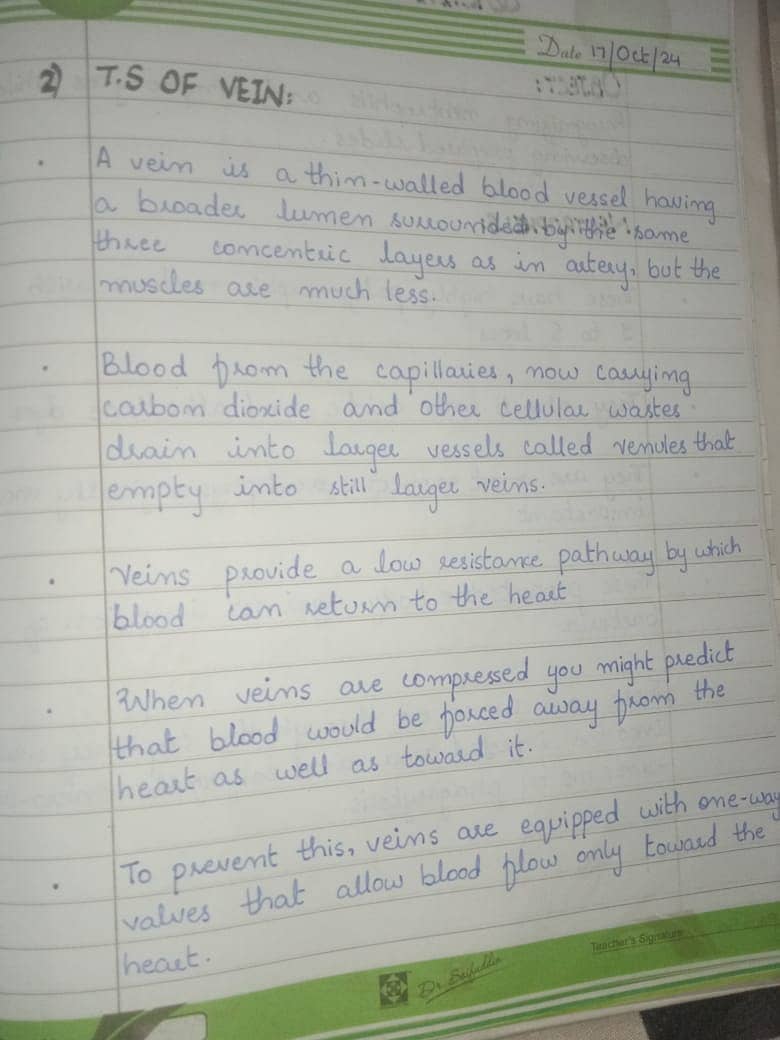 Date 17/Oct/24
2) T.S OF VEIN:
. A vein is a thin-walled blood vessel having
a broader lumen surrounded by the same
three concentric layers as in artery, but the
muscles are much less.
. Blood from the capillaries, now carrying
carbon dioxide and other cellular wastes
drain into larger vessels called venules that
empty into still larger veins.
. Veins provide a low resistance pathway by which
blood can return to the heart
. When veins are compressed you might predict
that blood would be forced away from the
heart as well as toward it.
. To prevent this, veins are equipped with one-way
valves that allow blood flow only toward the
heart.
Teacher's Signature
Dr. Saifuddin